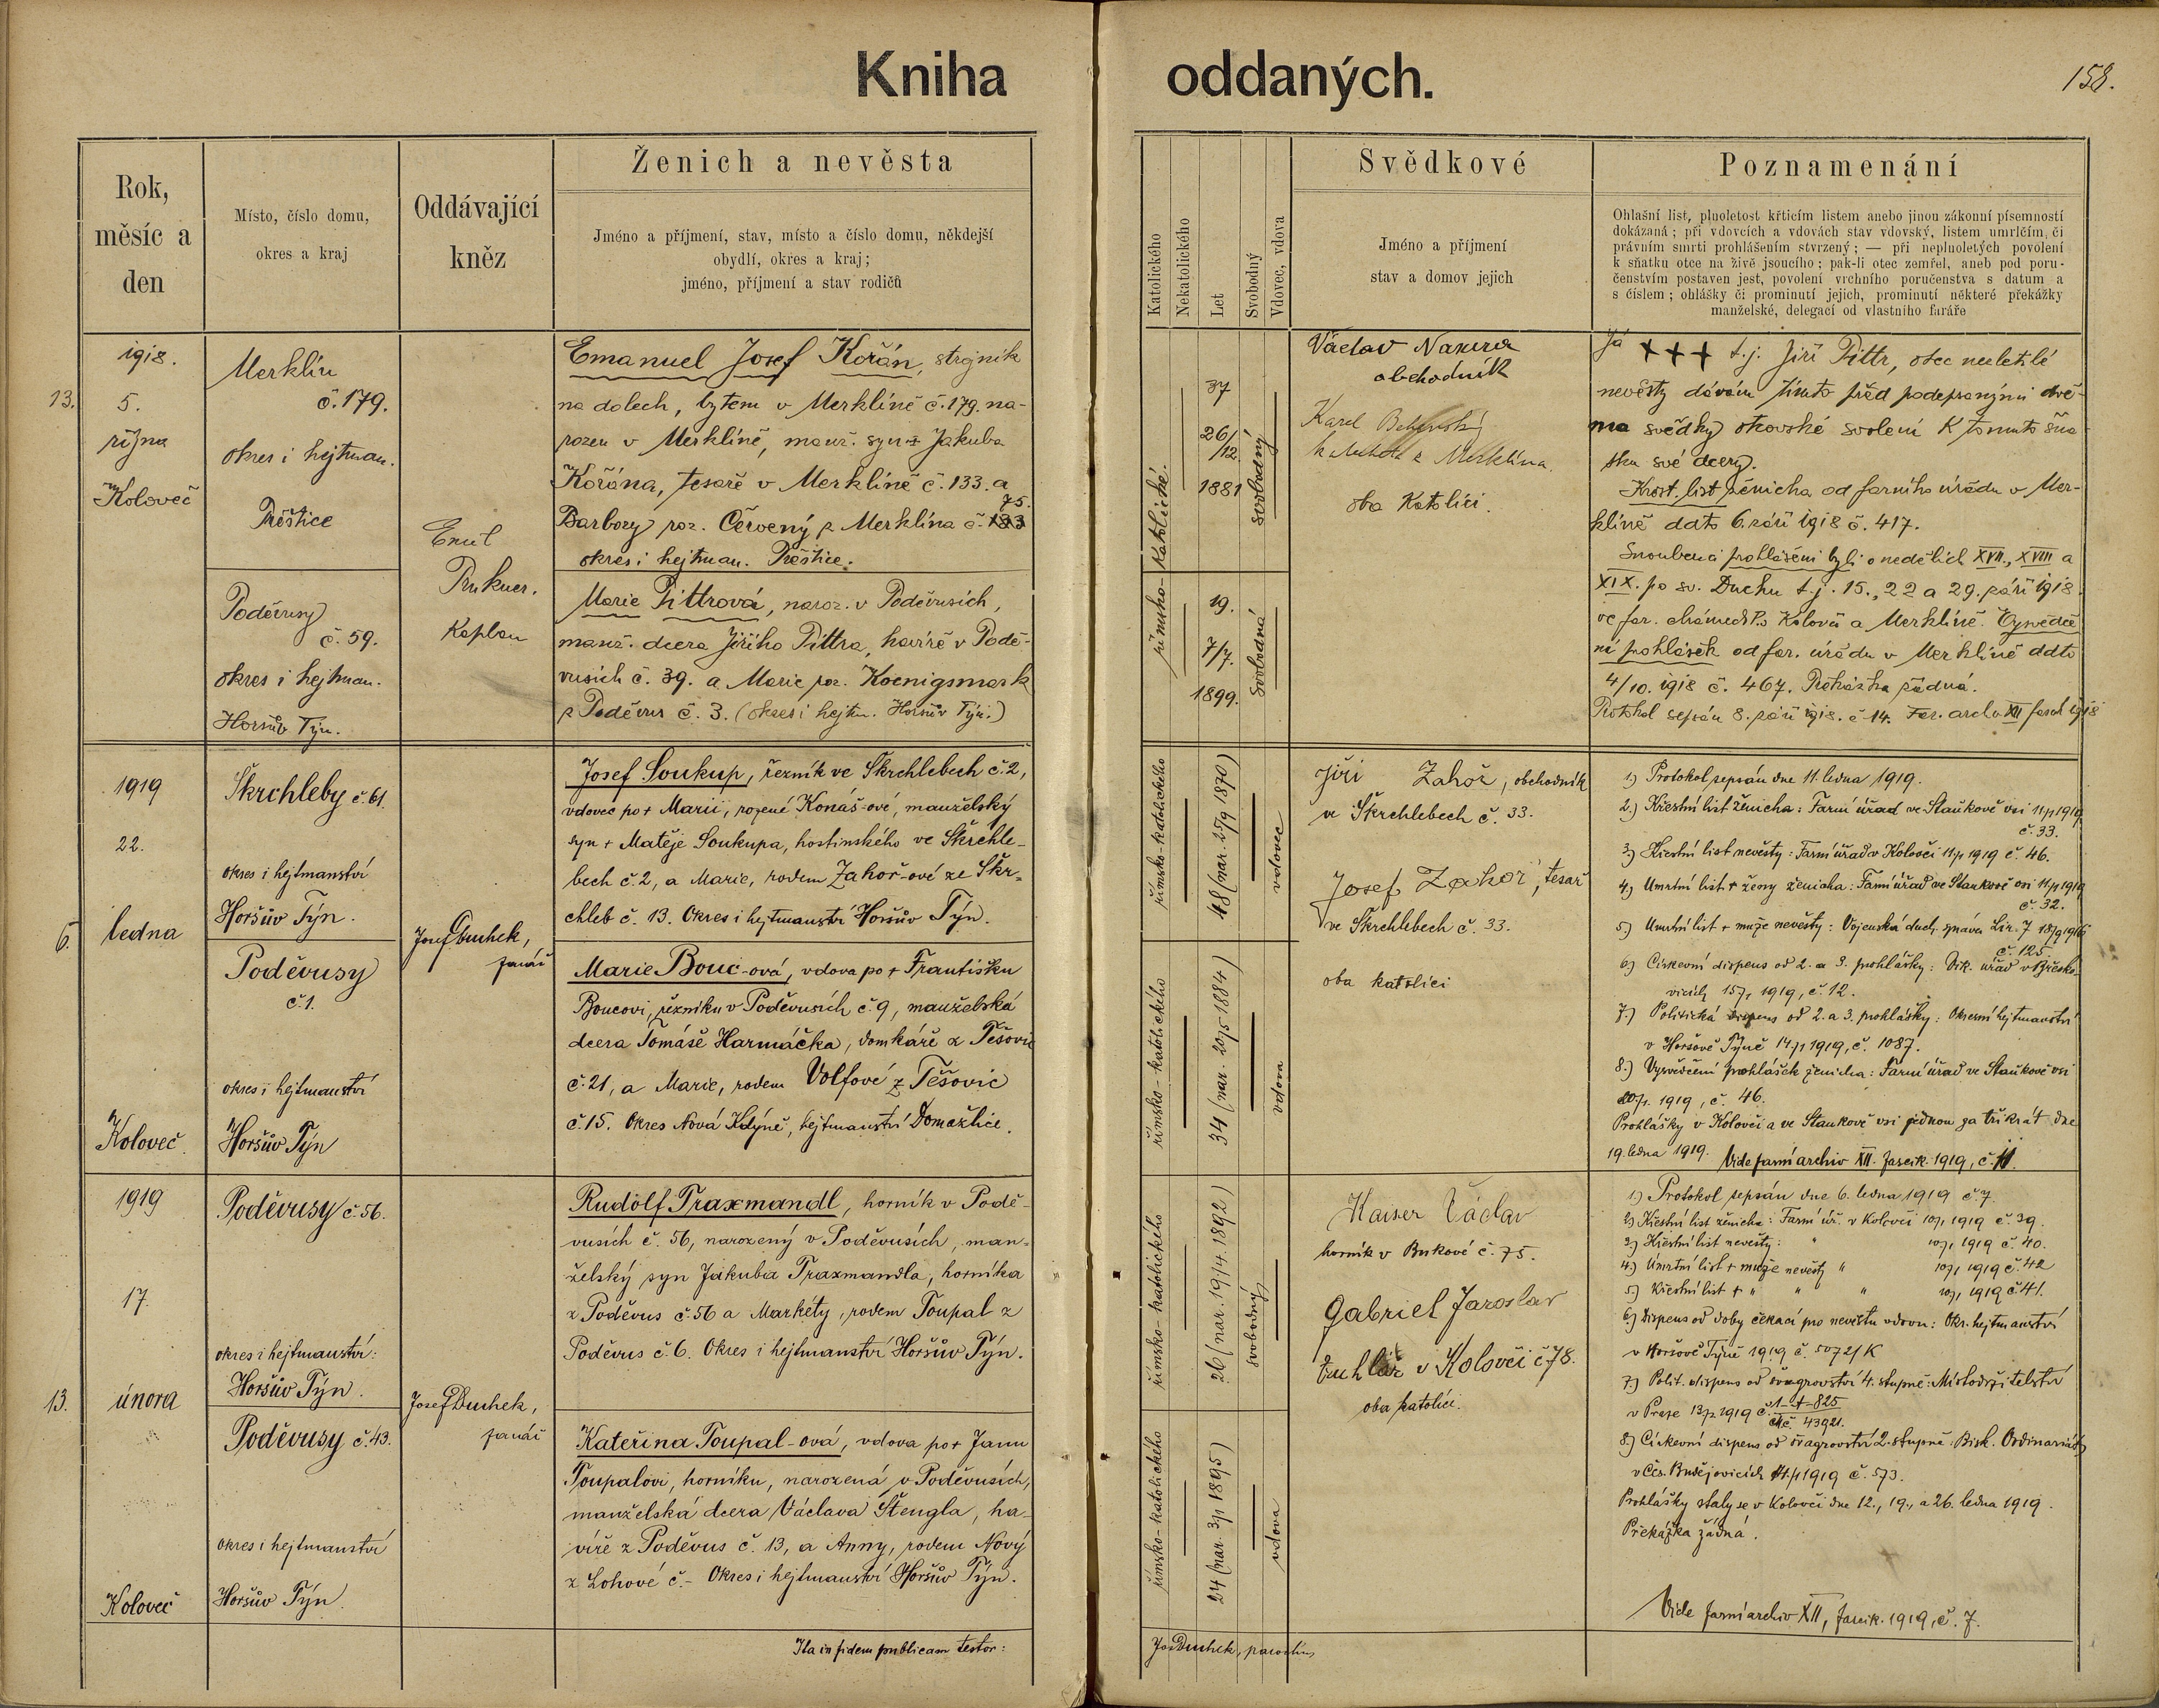 Kniha oddaných.
158.
Rok,
měsíc a
den
Místo, číslo domu,
okres a kraj
Oddávající
kněz
Ženich a nevěsta
Jméno a příjmení, stav, místo a číslo domu, někdejší
obydlí, okres a kraj;
jméno, příjmení a stav rodičů
Katolického
Nekatolického
Let
Svobodný
Vdovec, vdova
Svědkové
Jméno a příjmení
stav a domov jejich
Poznamenání
Ohlašní list, plnoletost křticím listem anebo jinou zákonní písemností
dokázaná; při vdovcích a vdovách stav vdovský, listem umrlčím, či
právním smrti prohlášením stvrzený; — při neplnoletých povolení
k sňatku otce na živě jsoucího; pak-li otec zemřel, aneb pod poru-
čenstvím postaven jest, povolení vrchního poručenstva s datum a
s číslem; ohlášky či prominutí jejich, prominutí některé překážky
manželské, delegací od vlastního faráře
13.
1918.
5.
října
Koloveč
Merklín
č. 179.
okres i hejtman.
Přeštice
Poděvusy
č. 59.
okres i hejtman.
Horšův Týn.
Emil
Kaplan
Emanuel Josef Kořán, strojník
na dolech, bytem v Merklíně č. 179. na-
rozen v Merklíně, manž. syn Jakuba
Kořána, tesaře v Merklíně č. 133. a
75.
Barbory roz. Červený z Merklína č. 133
okres i hejtman. Přeštice.
Marie Pittrová, naroz. v Poděvusích,
manž. dcera Jiřího Pittra, havíře v Podě-
vusích č. 39. a Marie roz. Koenigsmark
z Poděvus č. 3. (okres i hejtm. Horšův Týn.)
římsko-katolické.
37
26/12.
1881
svobodný
19.
7/7.
1899.
svobodná
Václav
obchodník
Karel
z Merklína.
oba Katolíci.
Já +++ t.j. Jiří Pittr, otec nezletilé
nevěsty dávám tímto před podepsanými dvě-
ma svědky otcovské svolení k tomuto sňa-
tku své dcery.
Křest. list ženicha od farního úřadu v Mer-
klíně dato 6. září 1918 č. 417.
Snoubenci prohlášeni byli o nedělích XVII., XVIII a
XIX. po sv. Duchu t.j. 15., 22 a 29. září 1918.
ve far. chrámech P. v Kolovči a Merklíně. Vysvědče-
ní prohlášek od far. úřadu v Merklíně ddto
4/10. 1918 č. 467. Překážka žádná.
Protokol sepsán 8. září 1918. č. 14. Far. archiv XII fasck 1918
6.
1919
22.
ledna
Koloveč.
Škrchleby č. 61.
okres i hejtmanství
Horšův Týn.
Poděvusy
č. 1.
okres i hejtmanství
Horšův Týn
Josef Duchek,
farář
Josef Soukup, řezník ve Škrchlebech č. 2,
vdovec po + Marii, rozené Konáš-ové, manželský
syn + Matěje Soukupa, hostinského ve Škrchle-
bech č. 2, a Marie, rodem Zahoř-ové ze Škr-
chleb č. 13. Okres i hejtmanství Horšův Týn.
Marie Bouc-ová, vdova po + Františku
Boucovi, řezníku v Poděvusích č. 9, manželská
dcera Tomáše Harmáčka, domkáře z Těšovic
č. 21, a Marie, rodem Volfové z Těšovic
č. 15. Okres Nová Kdýně, hejtmanství Domažlice.
římsko-katolického
48 (nar. 25/9 1870)
vdovec
římsko-katolického
34 (nar. 20/5 1884)
vdova
Jiří Zahoř, obchodník
ve Škrchlebech č. 33.
Josef Zahoř, tesař
ve Škrchlebech č. 33.
oba katolíci
1.) Protokol sepsán dne 11. ledna 1919.
2.) Křestní list ženicha: Farní úřad ve Staňkově vsi 11/1 1919
č. 33.
3.) Křestní list nevěsty: Farní úřad v Kolovči 11/1 1919 č. 46.
4.) Úmrtní list + ženy ženicha: Farní úřad ve Staňkově vsi 11/1 1919
č. 32.
5.) Úmrtní list + muže nevěsty: Vojenská duch. správa 18/9 1916
č. 125
6.) Církevní dispens od 2. a 3. prohlášky: Vik. úřad v
15/1 1919, č. 12.
7.) Politická dispens od 2. a 3. prohlášky: Okresní hejtmanství
v Horšově Týně 14/1 1919, č. 1087.
8.) Vysvědčení prohlášek ženicha: Farní úřad ve Staňkově vsi
20/1. 1919, č. 46.
Prohlášky v Kolovči a ve Staňkově vsi jednou za třikrát dne
19. ledna 1919. Vide farní archiv XII. fascik. 1919, č. 11.
13.
1919
17.
února
Koloveč
Poděvusy č. 56.
okres i hejtmanství:
Horšův Týn.
Poděvusy č. 43.
okres i hejtmanství
Horšův Týn.
Josef Duchek,
farář
Rudolf Traxmandl, horník v Podě-
vusích č. 56, narozený v Poděvusích, man-
želský syn Jakuba Traxmandla, horníka
z Poděvus č. 56 a Markéty, rodem Toupal z
Poděvus č. 6. Okres i hejtmanství Horšův Týn.
Kateřina Toupal-ová, vdova po + Janu
Toupalovi, horníku, narozená v Poděvusích,
manželská dcera Václava Štengla, ha-
víře z Poděvus č. 13, a Anny, rodem Nový
z Lohové č. - Okres i hejtmanství Horšův Týn.
římsko-katolického
26 (nar. 19/4. 1892)
svobodný
římsko-katolického
24 (nar. 3/1 1895)
vdova
Kaiser Václav
horník v Bukové č. 75.
Gabriel Jaroslav
truhlář v Kolovči č. 78.
oba katolíci.
1.) Protokol sepsán dne 6. ledna 1919 č. 7.
2.) Křestní list ženicha: Farní úř. v Kolovči 10/1 1919 č. 39.
3.) Křestní list nevěsty: " 10/1 1919 č. 40.
4.) Úmrtní list + muže nevěsty " 10/1 1919 č. 42
5.) Křestní list + " " " 10/1 1919 č. 41.
6.) Dispens od doby čekací pro nevěstu vdovu: Okr. hejtmanství
v Horšově Týně 1919 č. 50721/K
7.) Polit. dispens od švagrovství 4. stupně: Místodržitelství
v Praze 13/2 1919 č. 1-A-825
43921.
8.) Církevní dispens od švagrovství 2. stupně: Bisk. Ordinariát
v Čes. Budějovicích 1919 č. 573.
Prohlášky staly se v Kolovči dne 12., 19., a 26. ledna 1919.
Překážka žádná.
Vide farní archiv XII, fascik. 1919, č. 7.
Ita in fidem publicam testor:
Jos Duchek, parochus